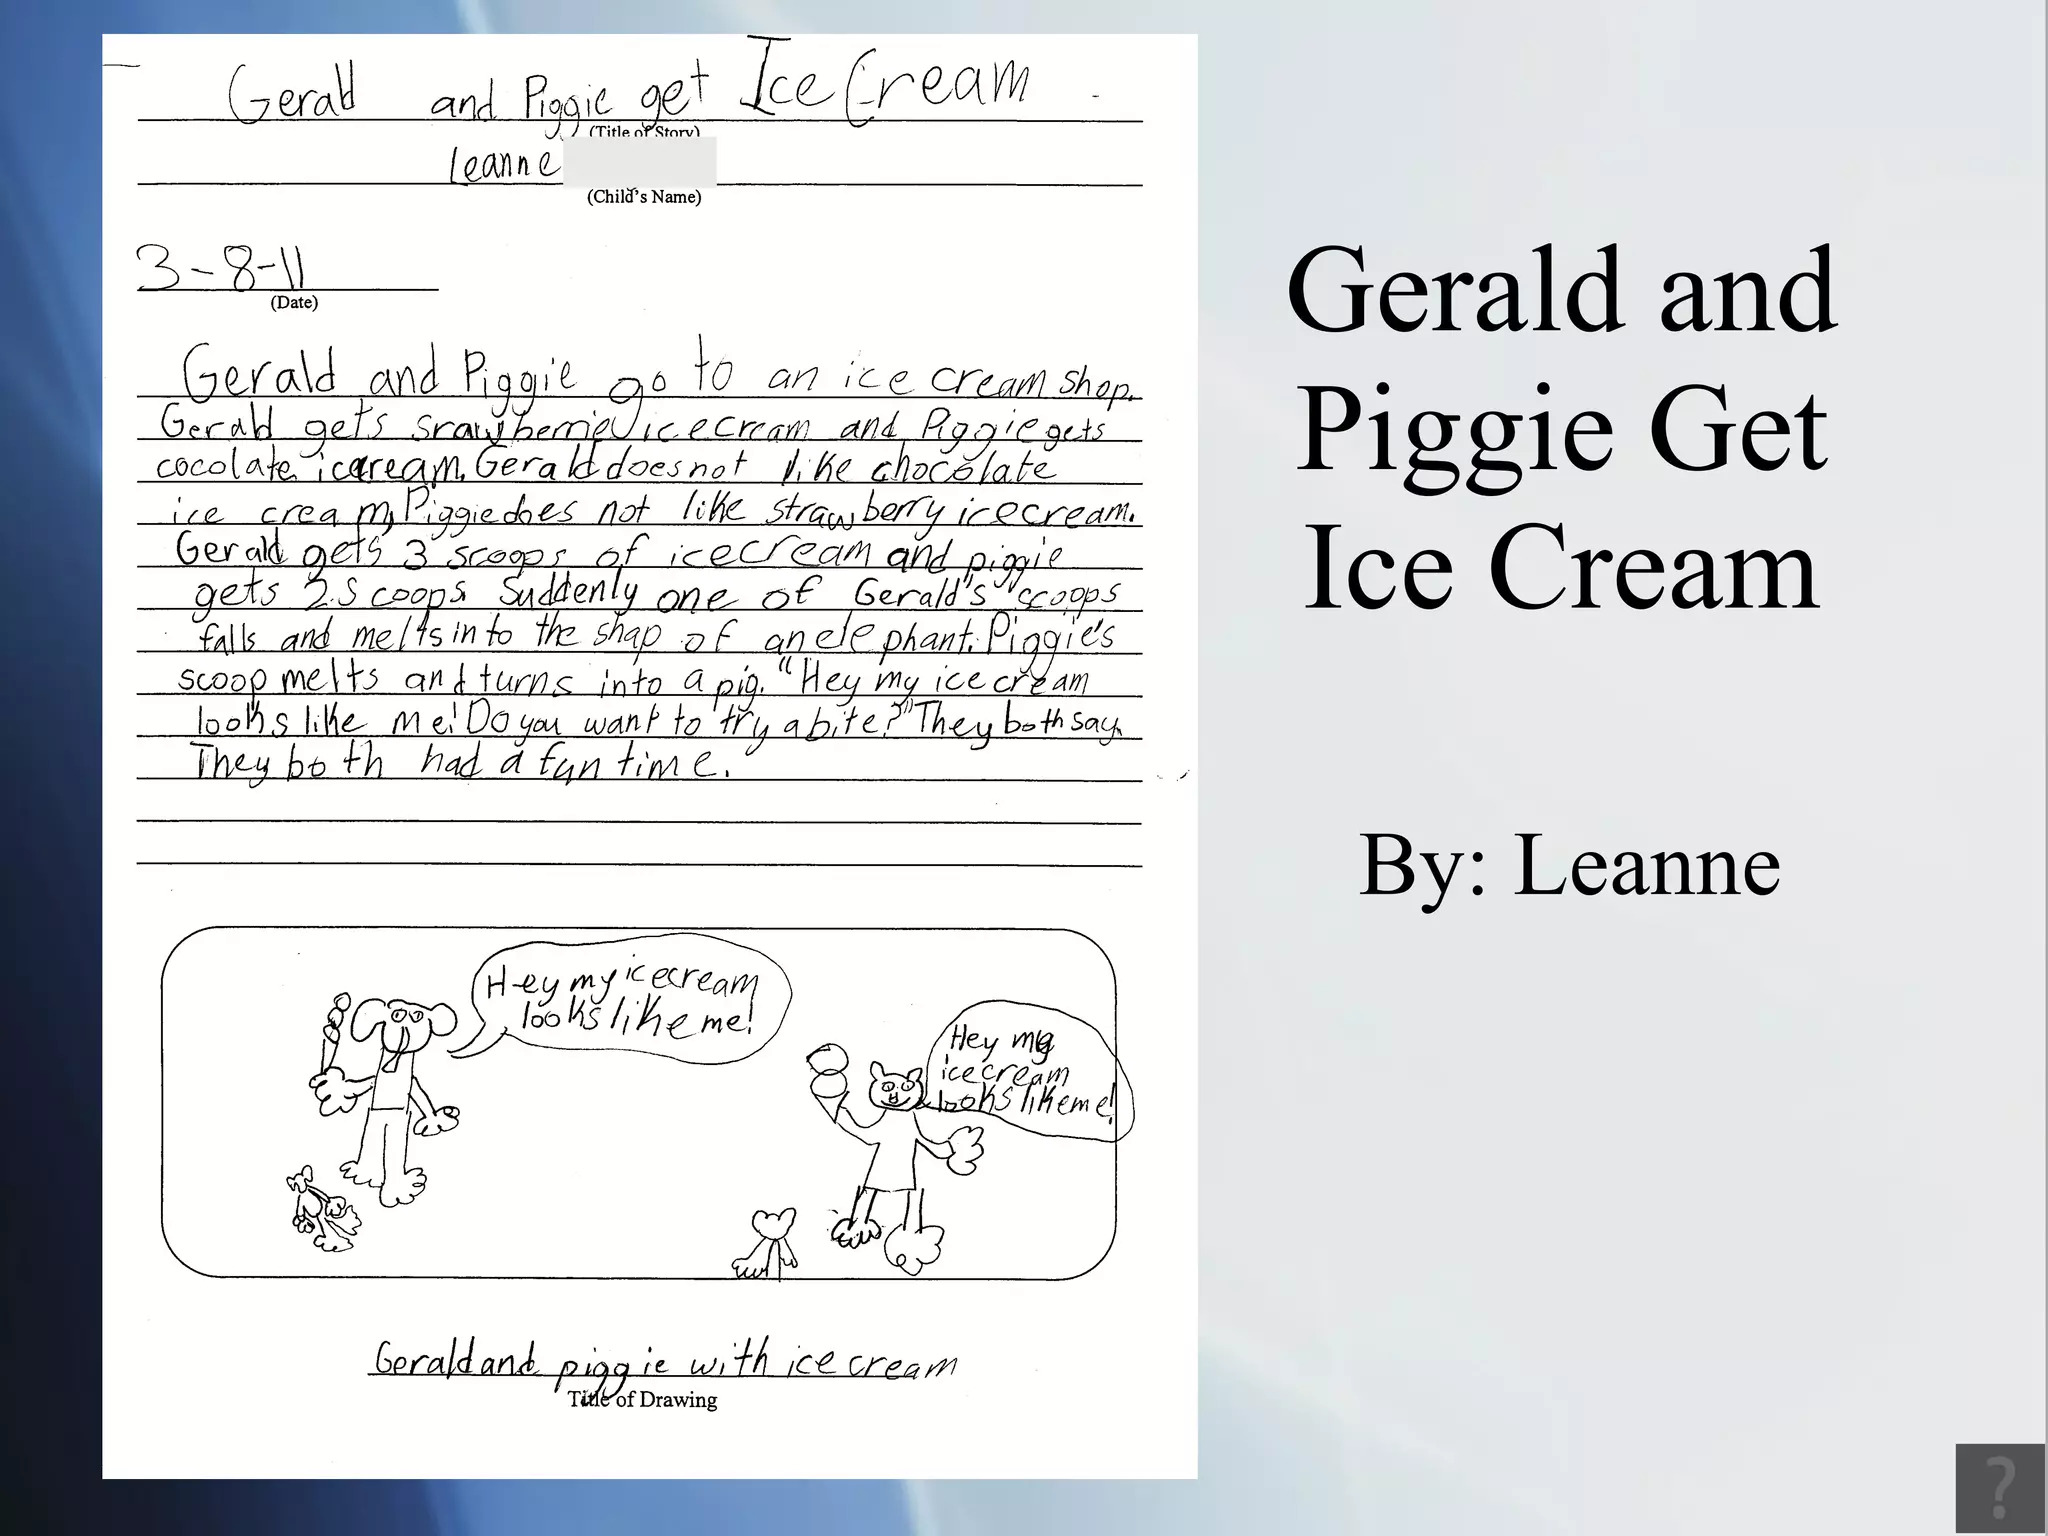 Gerald and Piggie get Ice Cream
(Title of Story)
Leanne
(Child's Name)
3-8-11
(Date)
Gerald and Piggie go to an ice cream shop.
Gerald gets srawberrie icecream and Piggie gets
cocolate icecream. Gerald does not like chocolate
ice cream, Piggie does not like strawberry icecream.
Gerald gets 3 scoops of icecream and piggie
gets 2 scoops. Suddenly one of Gerald's scoops
falls and melts into the shap of an elephant. Piggie's
scoop melts and turns into a pig. "Hey my ice cream
looks like me! Do you want to try a bite?" They both say.
They both had a fun time.
Hey my icecream
looks like me!
Hey my
icecream
looks like me!
Gerald and piggie with ice cream
Title of Drawing
Gerald and
Piggie Get
Ice Cream
By: Leanne
?